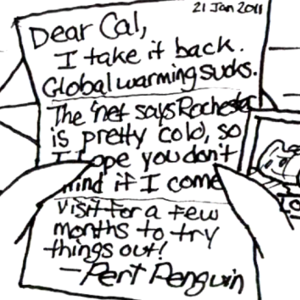 21 Jan 2011
Dear Cal,
I take it back.
Global warming sucks.
The 'net says Rochester
is pretty cold, so
I hope you don't
mind if I come
visit for a few
months to try
things out!
—Pert Penguin